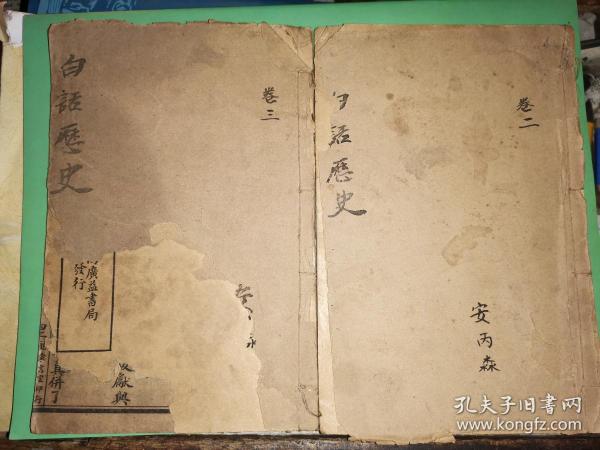 白話歷史
卷三
廣益書局
發行
獻與
白話歷史
卷二
安丙森
孔夫子旧书网
www.kongfz.com